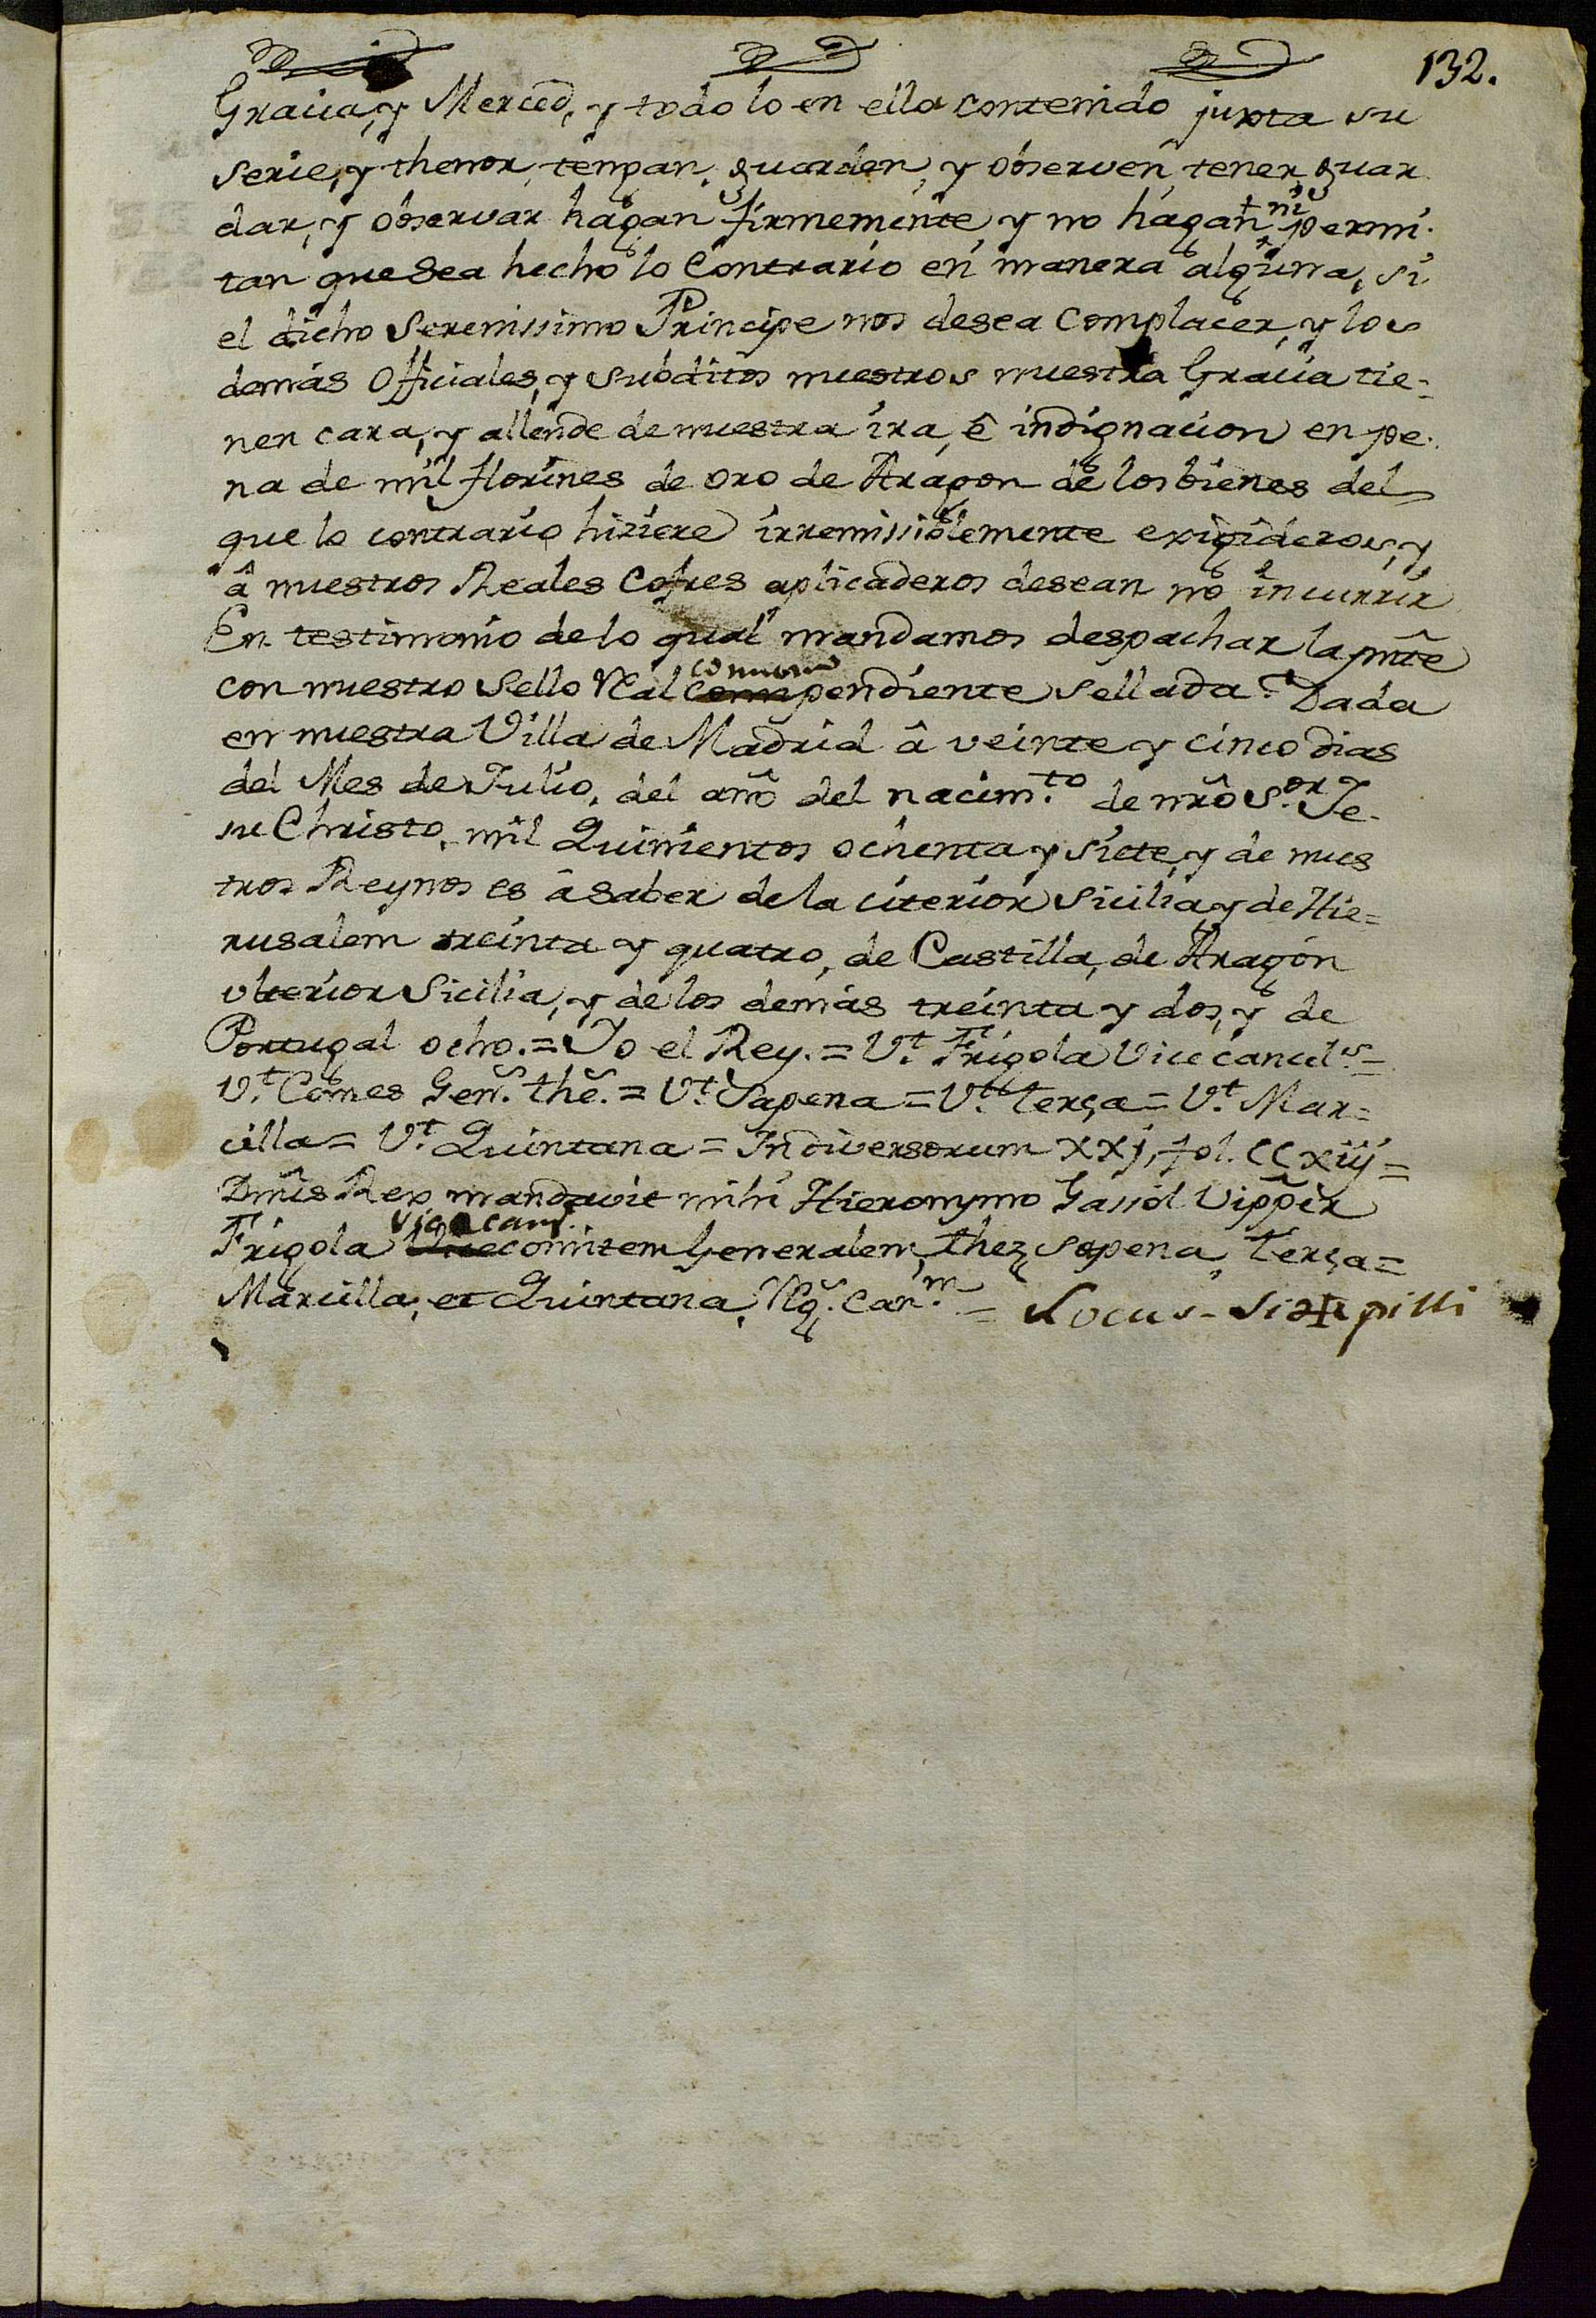 132.
Gracia, y Merced, y todo lo en ella contenido juxta su
serie, y thenor, tengan, guarden, y observen, tener, guar
dar, y observar hagan firmemente, y no hagan ni permi-
tan que sea hecho lo Contrario en manera alguna, si
el dicho Serenissimo Principe nos desea Complacer, y los
demás Officiales, y subditos nuestros nuestra Gracia tie-
nen cara, y allende de nuestra ira, ê indignacion en pe-
na de mil florines de oro de Aragon de los bienes del
que lo contrario hiziere irremissiblemente exigideros, y
â nuestros Reales Cofres aplicaderos desean no incurrir
En testimonio de lo qual mandamos despachar la pn̂te
con nuestro Sello Real comun pendiente sellada. Dada
en nuestra Villa de Madrid â veinte y cinco dias
del Mes de Julio, del año del nacim.to de nrô S.or Je-
su Christo, mil Quinientos ochenta y siete, y de nues
tros Reynos es â saber de la citerior Sicilia, y de Hie=
rusalem treinta y quatro, de Castilla, de Aragón
ulterior Sicilia, y de los demás treinta y dos, y de
Portugal ocho. = Yo el Rey. = V.t Frigola Vicecancels =
V.t Comes Gen.s the.s = V.t Sapena = V.t Terça = V.t Mar=
cilla = V.t Quintana = In diversorum xxj, fol. CCxiij =
Dm̂s Rex mandavit mihi Hieronymo Gassol Vipper
Frigola Vicecan comitem Generalem, thez, Sapena, Terça =
Marcilla, et Quintana, Rg. Can.m = Locus-Si+gilli